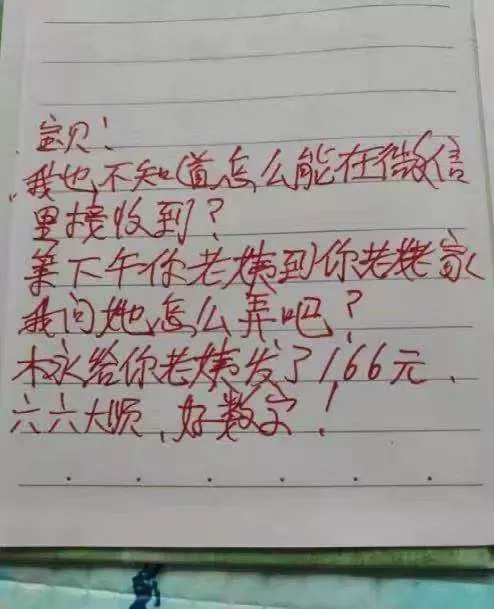 宝贝！
我也不知道怎么能在微信
里接收到？
等下午你老姨到你老姥家
我问她怎么弄吧？
给你老姨发了1.66元.
六六大顺,好数字！